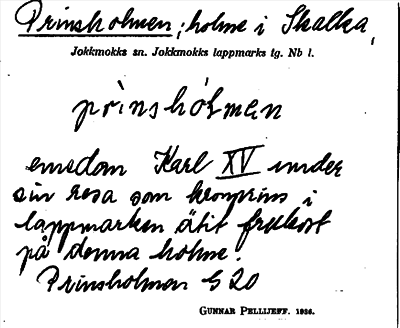 Prinsholmen; holme i Skalka,
Jokkmokks sn. Jokkmokks lappmarks tg. Nb l.
prìnshólmen
emedom Karl XV under
sin resa som kronprins i
lappmarken ätit frukost
på denna holme.
Prinsholmen G 20
GUNNAR PELLIJEFF. 1936.